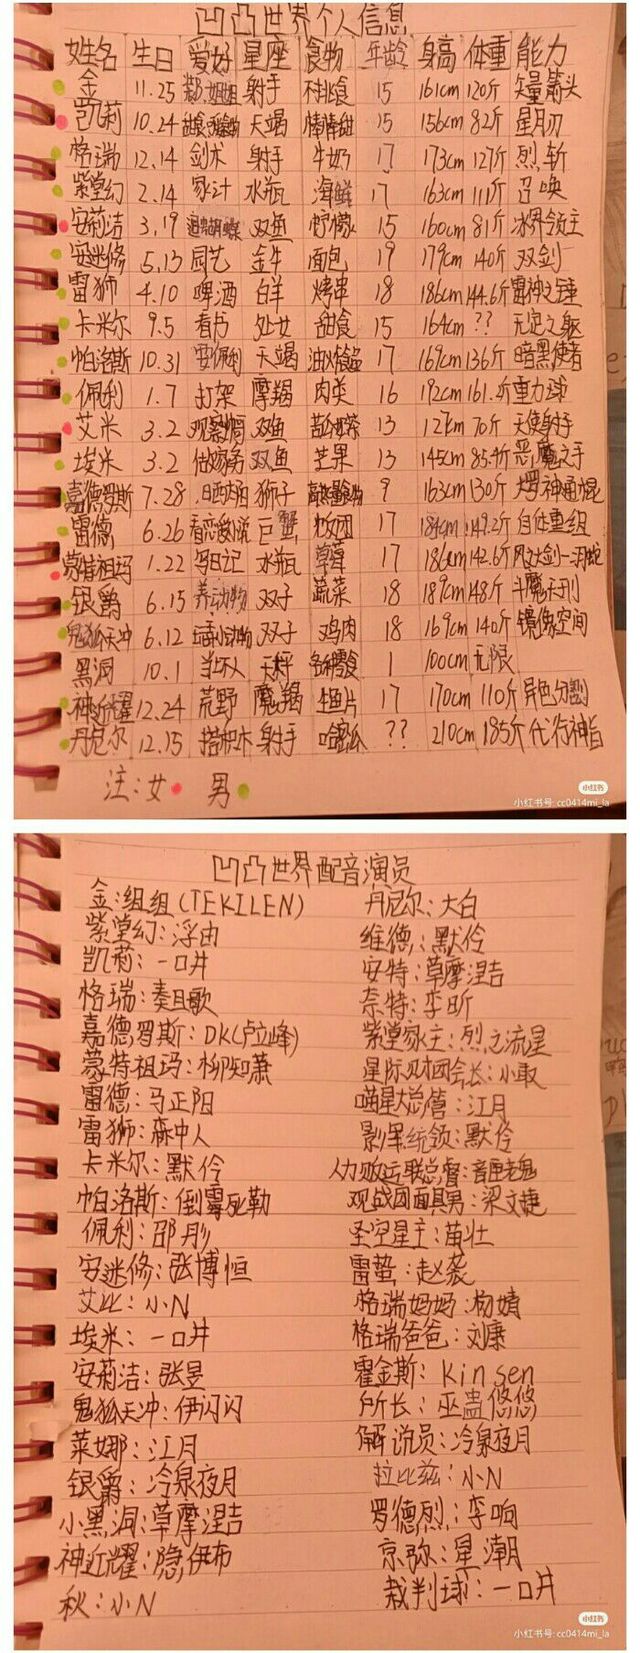 凹凸世界个人信息
姓名 生日 爱好 星座 食物 年龄 身高 体重 能力
金 11.25 射手 不挑食 15 161cm 120斤 矢量箭头
凯莉 10.24 天蝎 棒棒糖 15 156cm 82斤 星月刃
格瑞 12.14 剑术 射手 牛奶 17 173cm 127斤 烈斩
紫堂幻 2.14 家计 水瓶 海鲜 17 163cm 111斤 召唤
安莉洁 3.19 双鱼 柠檬 15 160cm 81斤 冰界领主
安迷修 5.13 园艺 金牛 面包 19 179cm 140斤 双剑
雷狮 4.10 啤酒 白羊 烤串 18 186cm 144.6斤 雷神之锤
卡米尔 9.5 看书 处女 甜食 15 164cm ?? 无定之躯
帕洛斯 10.31 安佩利 天蝎 17 169cm 136斤 暗黑使者
佩利 1.7 打架 摩羯 肉类 16 192cm 161.2斤 重力球
艾米 3.2 双鱼 13 127cm 70斤 天使射手
埃米 3.2 做家务 双鱼 芒果 13 145cm 85.4斤 恶魔之手
嘉德罗斯 7.28 晒太阳 狮子 9 163cm 130斤 大罗神通棍
雷德 6.26 看恋爱小说 巨蟹 17 184cm 149.2斤 自体重组
蒙特祖玛 1.22 写日记 水瓶 草莓 17 186cm 142.6斤
银爵 6.15 养动物 双子 蔬菜 18 189cm 148斤 斗魔天刑
鬼狐天冲 6.12 双子 鸡肉 18 169cm 140斤 镜像空间
黑洞 10.1 当坏人 天秤 各种零食 1 100cm 无限
神近耀 12.24 荒野 魔羯 生鱼片 17 170cm 110斤 异色分割
丹尼尔 12.15 搭积木 射手 哈密瓜 ?? 210cm 185斤 代行神旨
注:女 男
小红书
小红书号: cc0414mi_la
凹凸世界配音演员
金:组组(TEKILEN) 丹尼尔:大白
紫堂幻:浮由 维德:默伶
凯莉:一口井 安特:草摩涅吉
格瑞:奏且歌 奈特:李昕
嘉德罗斯:DK(卢立峰) 紫堂家主:烈之流星
蒙特祖玛:柳知萧 星际财团会长:小取
雷德:马正阳 喵星大总管:江月
雷狮:森中人 影军统领:默伶
卡米尔:默伶 人力贩运联总督:音匣老鬼
帕洛斯:倒霉死勒 观战团面具男:梁文捷
佩利:邵彤 圣空星主:苗壮
安迷修:张博恒 雷蛰:赵袭
艾比:小N 格瑞妈妈:杨婧
埃米:一口井 格瑞爸爸:刘康
安莉洁:张昱 霍金斯:Kinsen
鬼狐天冲:伊闪闪 所长:巫蛊悠悠
莱娜:江月 解说员:冷泉夜月
银爵:冷泉夜月 拉比兹:小N
小黑洞:草摩涅吉 罗德烈:李响
神近耀:隐伊布 京弥:星潮
秋:小N 裁判球:一口井
小红书
小红书号: cc0414mi_la